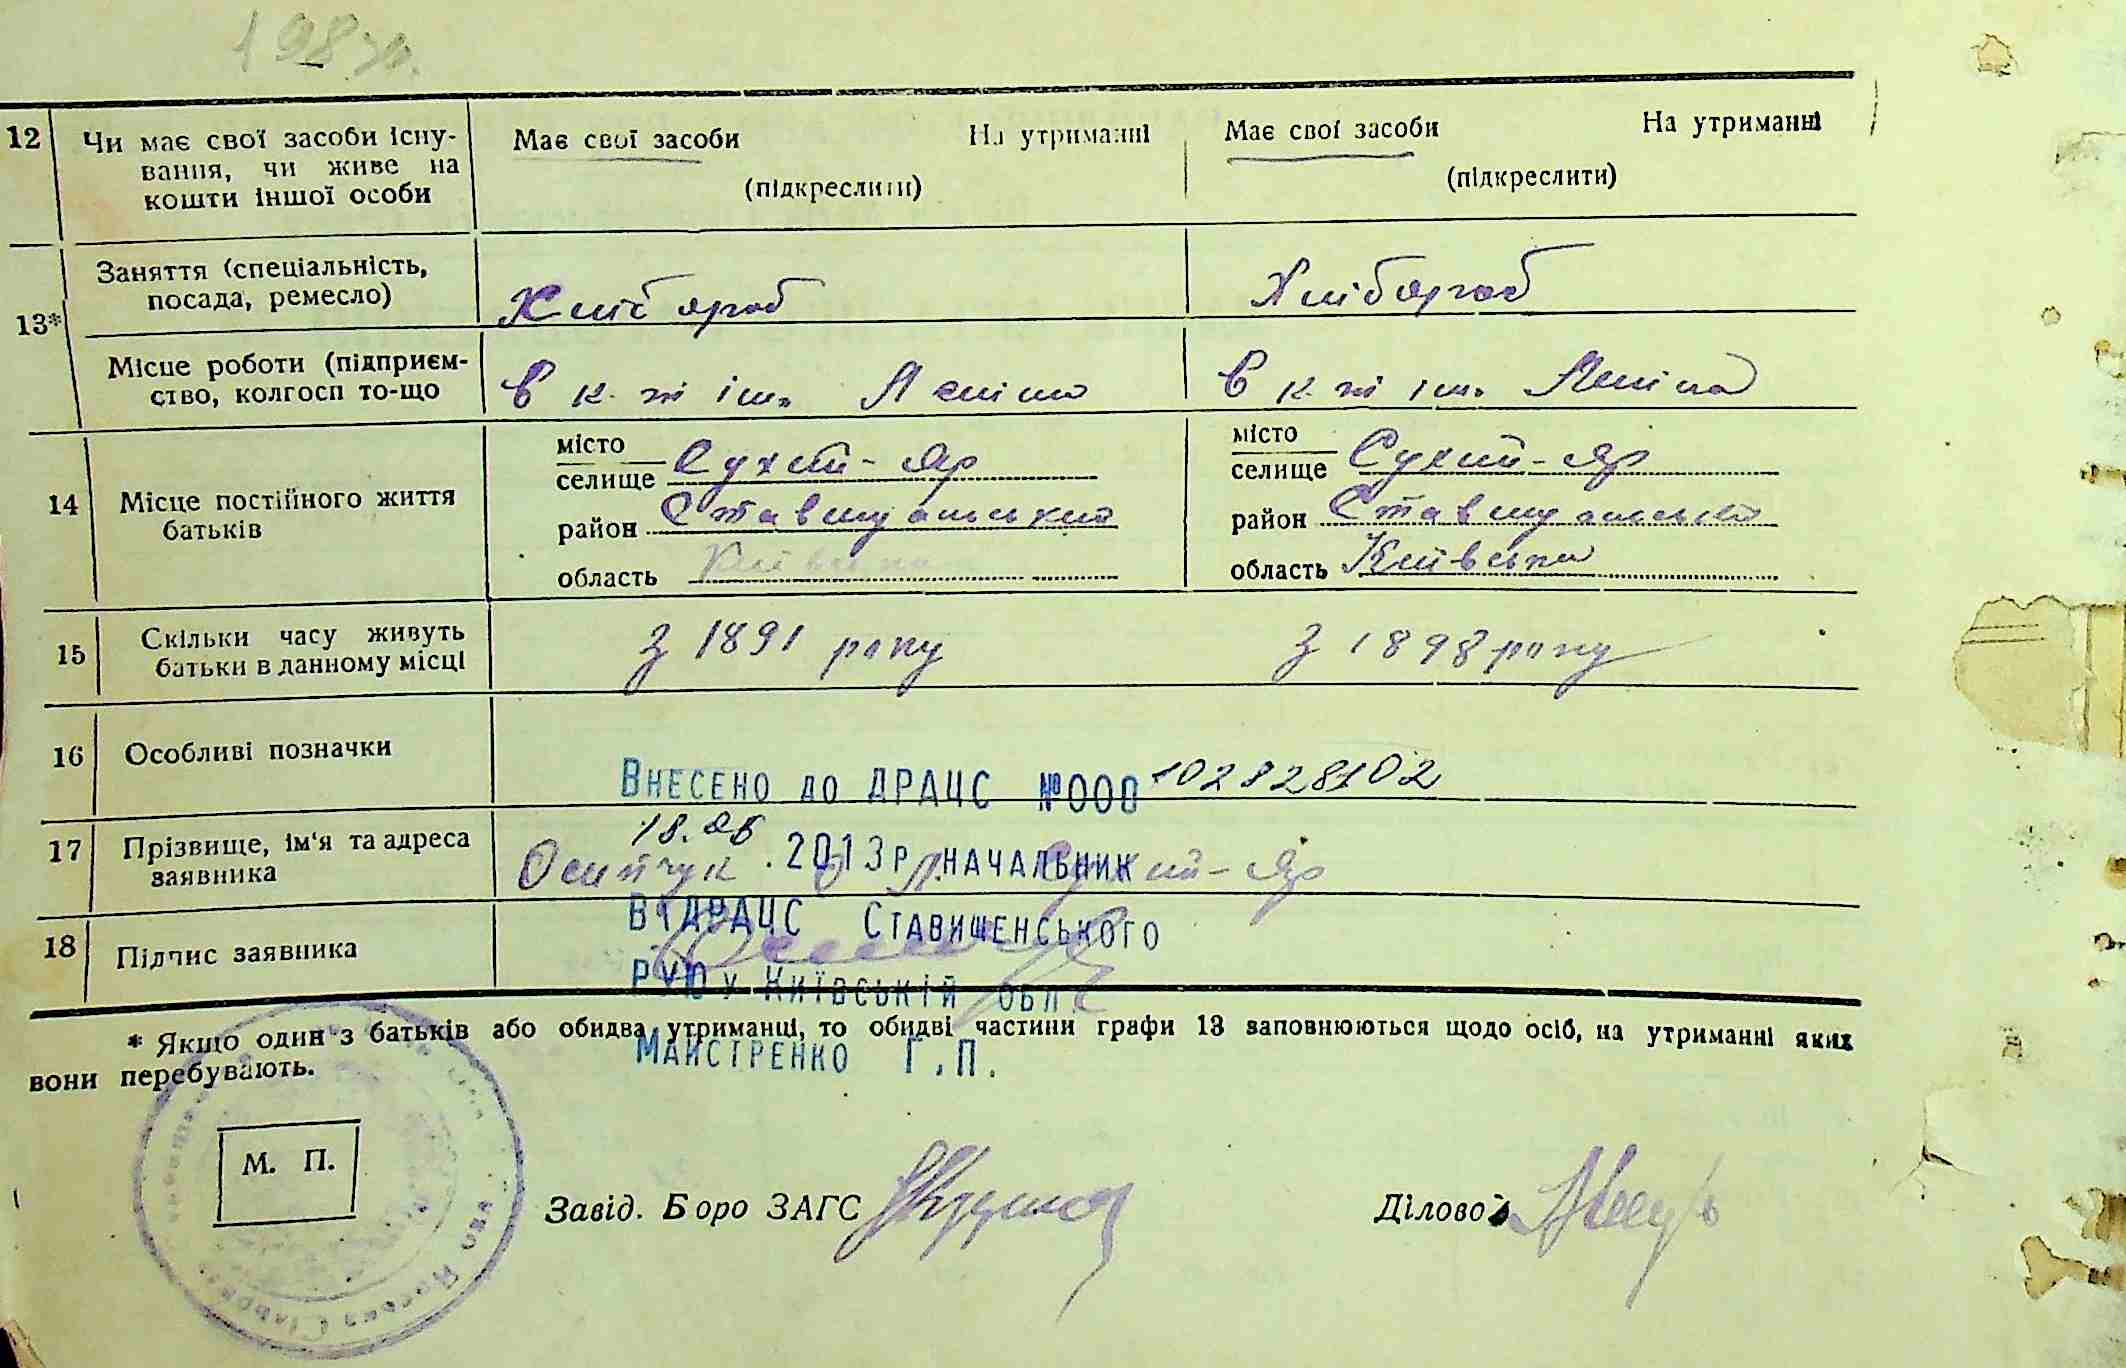 12 Чи має свої засоби існу-
вання, чи живе на
кошти іншої особи
Має свої засоби На утриманні
(підкреслити)
Має свої засоби На утриманні
(підкреслити)
13* Заняття (спеціальність,
посада, ремесло)
Хлібороб
Хлібороб
Місце роботи (підприєм-
ство, колгосп то-що
В к-ті ім. Леніна
В к-ті ім. Леніна
14 Місце постійного життя
батьків
місто
селище Сухий-Яр
район Ставищанський
область Київська
місто
селище Сухий-Яр
район Ставищанський
область Київська
15 Скільки часу живуть
батьки в данному місці
З 1891 року
З 1898 року
16 Особливі позначки
Внесено до ДРАЦС №000102828102
17 Прізвище, ім'я та адреса
заявника
18.06.2013р начальник
Осипчук Сухий-Яр
ВідРАЦС Ставищенського
18 Підпис заявника
РУЮ у Київській обл.
* Якщо один з батьків або обидва утриманці, то обидві частини графи 13 заповнюються щодо осіб, на утриманні яких
вони перебувають.
Майстренко Г.П.
М. П.
Завід. Бюро ЗАГС
Діловод